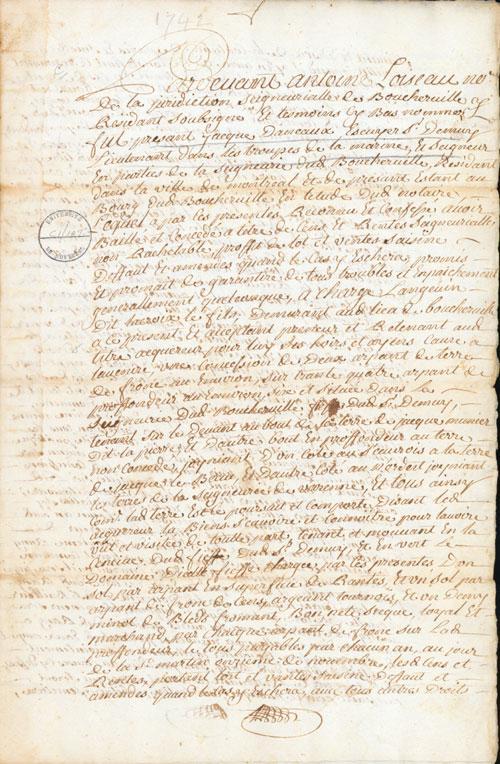 1742
Pardevant antoine Loiseau no.
De la juridiction Seigneurialle de Boucherville y
Residant Soubsigne Et tesmoins cy Bas nommez
fut present Jacque Daneaux Escuyer Sr Demuy
Lieutenant dans les troupes de la marine, Et Seigneur
En parties de la Seigneurie dud Boucherville, Residant
dans la ville de montreal et de present Estant au
Bourg dud Boucherville En letude dud notaire
Lequel a par les presentes Reconnu et Confessé avoir
Baillé et Concedé a titre de Cens et Rentes Seigneurialles
non Rachetable proffit de lot et ventes Saisine
Deffaut et amendes quand le Cas y Eschera promis
Et promait de garantire de tous troubles et Enpaichement
generallement quelconque, a Charge Langevin
Dit Lacroix le fils, Demeurant aud lieu de boucherville
a ce present Et acceptant preneur et Retenant aud
titre acquereur pour luy Ses hoirs et ayens Cause a
lavenire, une Concession de Deux arpant de terre
de frone au Environ, Sur trante quatre arpant de
proffondeur au Environ, size et Situee dans les
Seigneurie Dud Boucherville dud Sr Demuy,
tenant Sur le Devant au bout de la terre de jacque munier
Dit la pierre, et Dautre bout En proffondeur au terre
non Concedee, joignant D'un Coté au Sourois a la terre
de jacque le Beau, Et Dautre Coté au Nordest joignant
les terres de la Seigneurie de varenne, Et tous ainsy
Comme lad terre Estre poursuit et Comporte, Disant led
acquereur la Biens Scavoire et Connoitre pour lavoire
vüe et visitée de toutte part, tenant et mouvant En la
Censive dud fieffe dud Sr Demuy, Et En vert le
Domaine Dicelle fieffe chargée par les presentes D'un
Sol par arpant En Superficie de Rantes, Et un Sol par
arpant de frone de Cens, argeant tournois, et un Demy
minot de Bled fromant, Bon net, Secque, loyal Et
marchand, par Chaque arpant de frone Sur lad
proffondeur, le tous payables par chacun an, au jour
de la St martin onzieme de novembre, lesd Cens et
Rentes, portent lot et vantes Saisine Deffaut et
amendes quand le Cas y Eschera, avec tous autres Droits